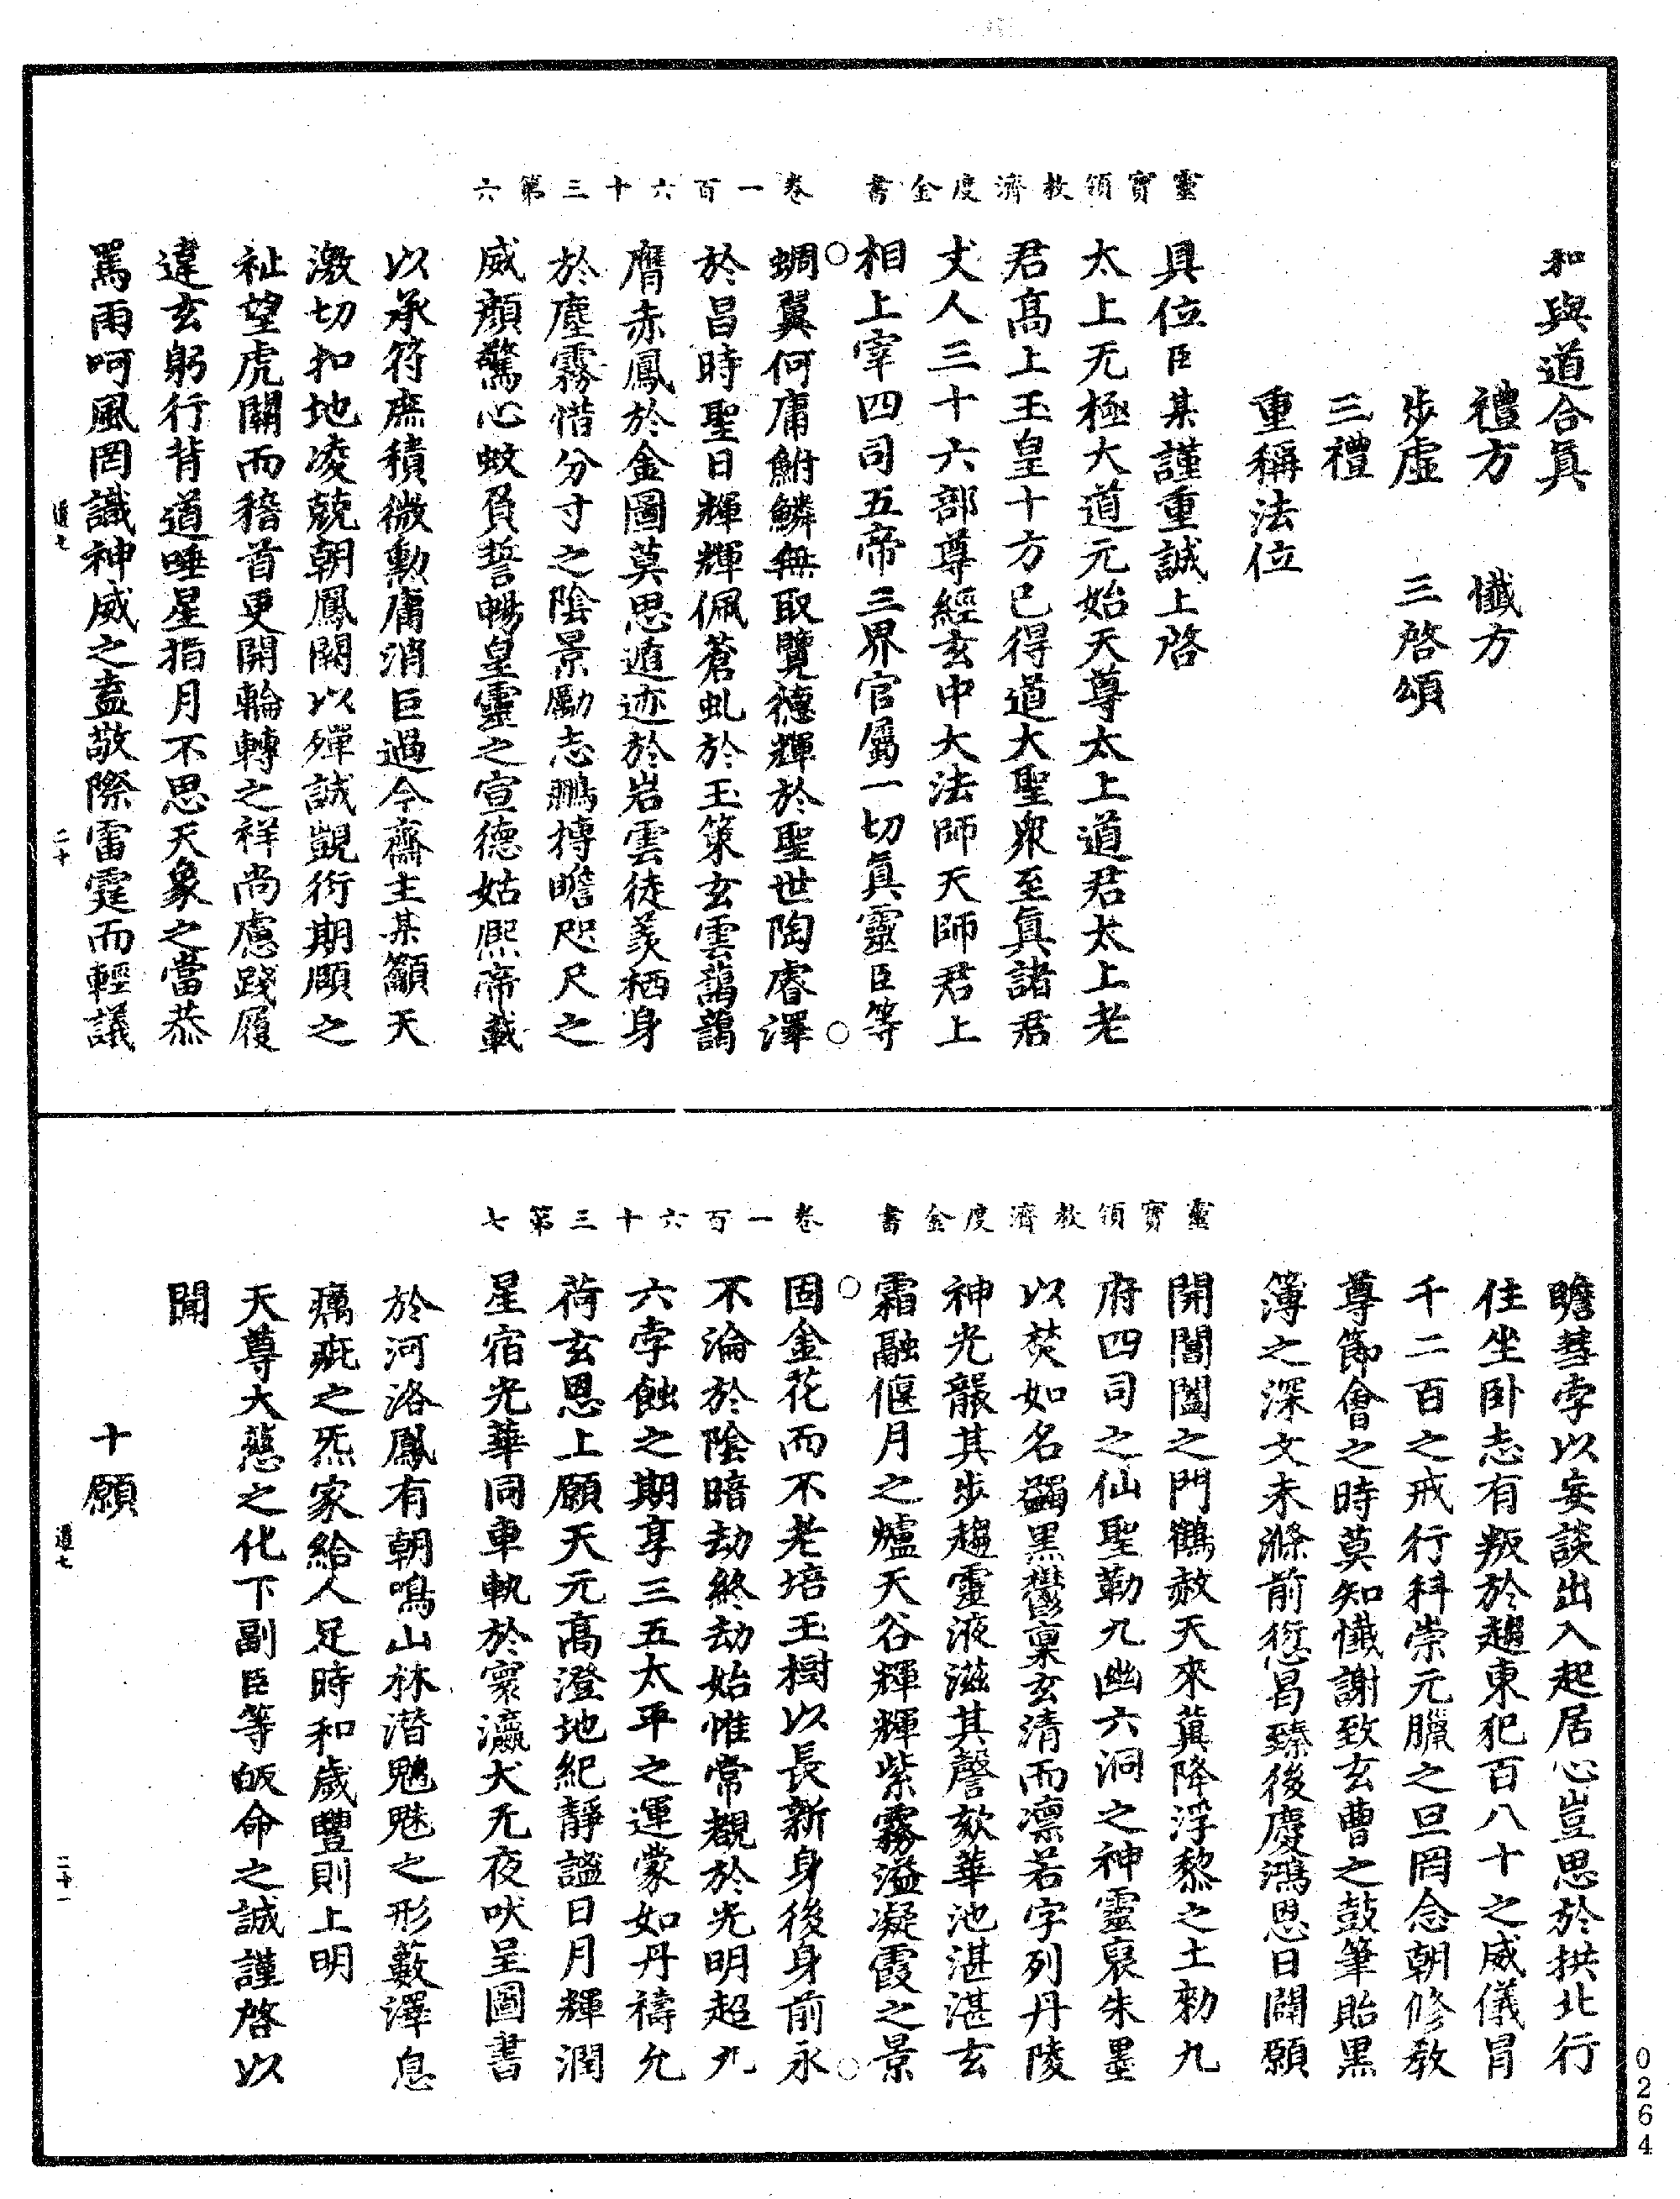 靈寶領教濟度金書　卷一百六十三第六
和與道合真
禮方　懺方
步虛　三啓頌
三禮
重稱法位
具位臣某謹重誠上啓
太上无極大道元始天尊太上道君太上老
君高上玉皇十方已得道大聖衆至真諸君
丈人三十六部尊經玄中大法師天師君上
相上宰四司五帝三界官屬一切真靈臣等
蜩翼何庸鮒鱗無取覽德輝於聖世陶睿澤
於昌時聖日輝輝佩蒼虬於玉策玄雲藹藹
膺赤鳳於金圖莫思遁迹於岩雲徒羨栖身
於塵霧惜分寸之陰景勵志鵬摶瞻咫尺之
威顏驚心蚊負誓暢皇靈之宣德姑熙帝載
以承符庶積微勳庸消巨過今齋主某籲天
激切扣地凌兢朝鳳闕以殫誠覬衍期頤之
祉望虎關而稽首更開輪轉之祥尚慮踐履
違玄躬行背道唾星指月不思天象之當恭
罵雨呵風罔識神威之盍敬際雷霆而輕議
道七　二十
靈寶領教濟度金書　卷一百六十三第七
瞻彗孛以妄談出入起居心豈思於拱北行
住坐卧志有叛於趨東犯百八十之威儀冒
千二百之戒行科崇元臘之旦罔念朝修教
尊節會之時莫知懺謝致玄曹之鼓筆貽黑
簿之深文未滌前愆曷臻後慶鴻恩日闢願
開閶闔之門鶴赦天來冀降浮黎之土勑九
府四司之仙聖勒九幽六洞之神靈裒朱墨
以焚如名蠲黑鬱稟玄清而凛若字列丹陵
神光龍其步趨靈液滋其謦欬華池湛湛玄
霜融偃月之爐天谷輝輝紫霧溢凝霞之景
固金花而不老培玉樹以長新身後身前永
不淪於陰暗劫終劫始惟常覩於光明超九
六孛蝕之期享三五太平之運蒙如丹禱允
荷玄恩上願天元高澄地紀靜謐日月輝潤
星宿光華同車軌於寰瀛犬无夜吠呈圖書
於河洛鳳有朝鳴山林潜魑魅之形藪澤息
癘疵之炁家給人足時和歲豐則上明
天尊大慈之化下副臣等皈命之誠謹啓以
聞
十願
道七　二十一
0264